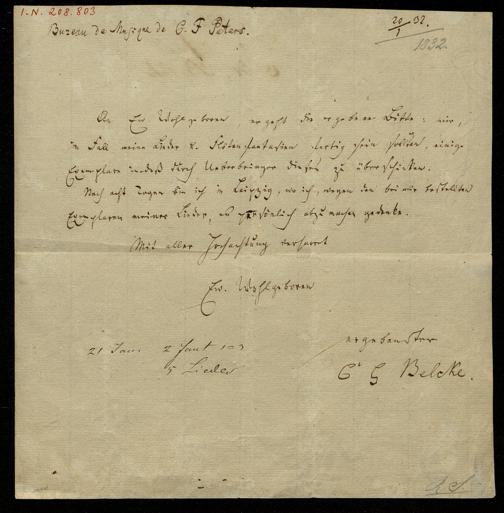 I.N. 208.803
Bureau de Musique de C. F. Peters.
20/1 32.
1832.
An Ew Wohlgeboren, ergeht die ergebene Bitte: mir,
im Fall meine Lieder u. Flötenfantasien fertig sein sollten, einige
Exemplare indeß durch Ueberbringer dieses zu überschicken.
Nach acht Tagen bin ich in Leipzig, wo ich, wegen den bei mir bestellten
Exemplaren meiner Lieder, es persönlich abzumachen gedenke.
Mit aller Hochachtung verharrt
Ew. Wohlgeboren
ergebenster
C G Belcke.
21 Jan. 2 Fant 1-3
5 Lieder